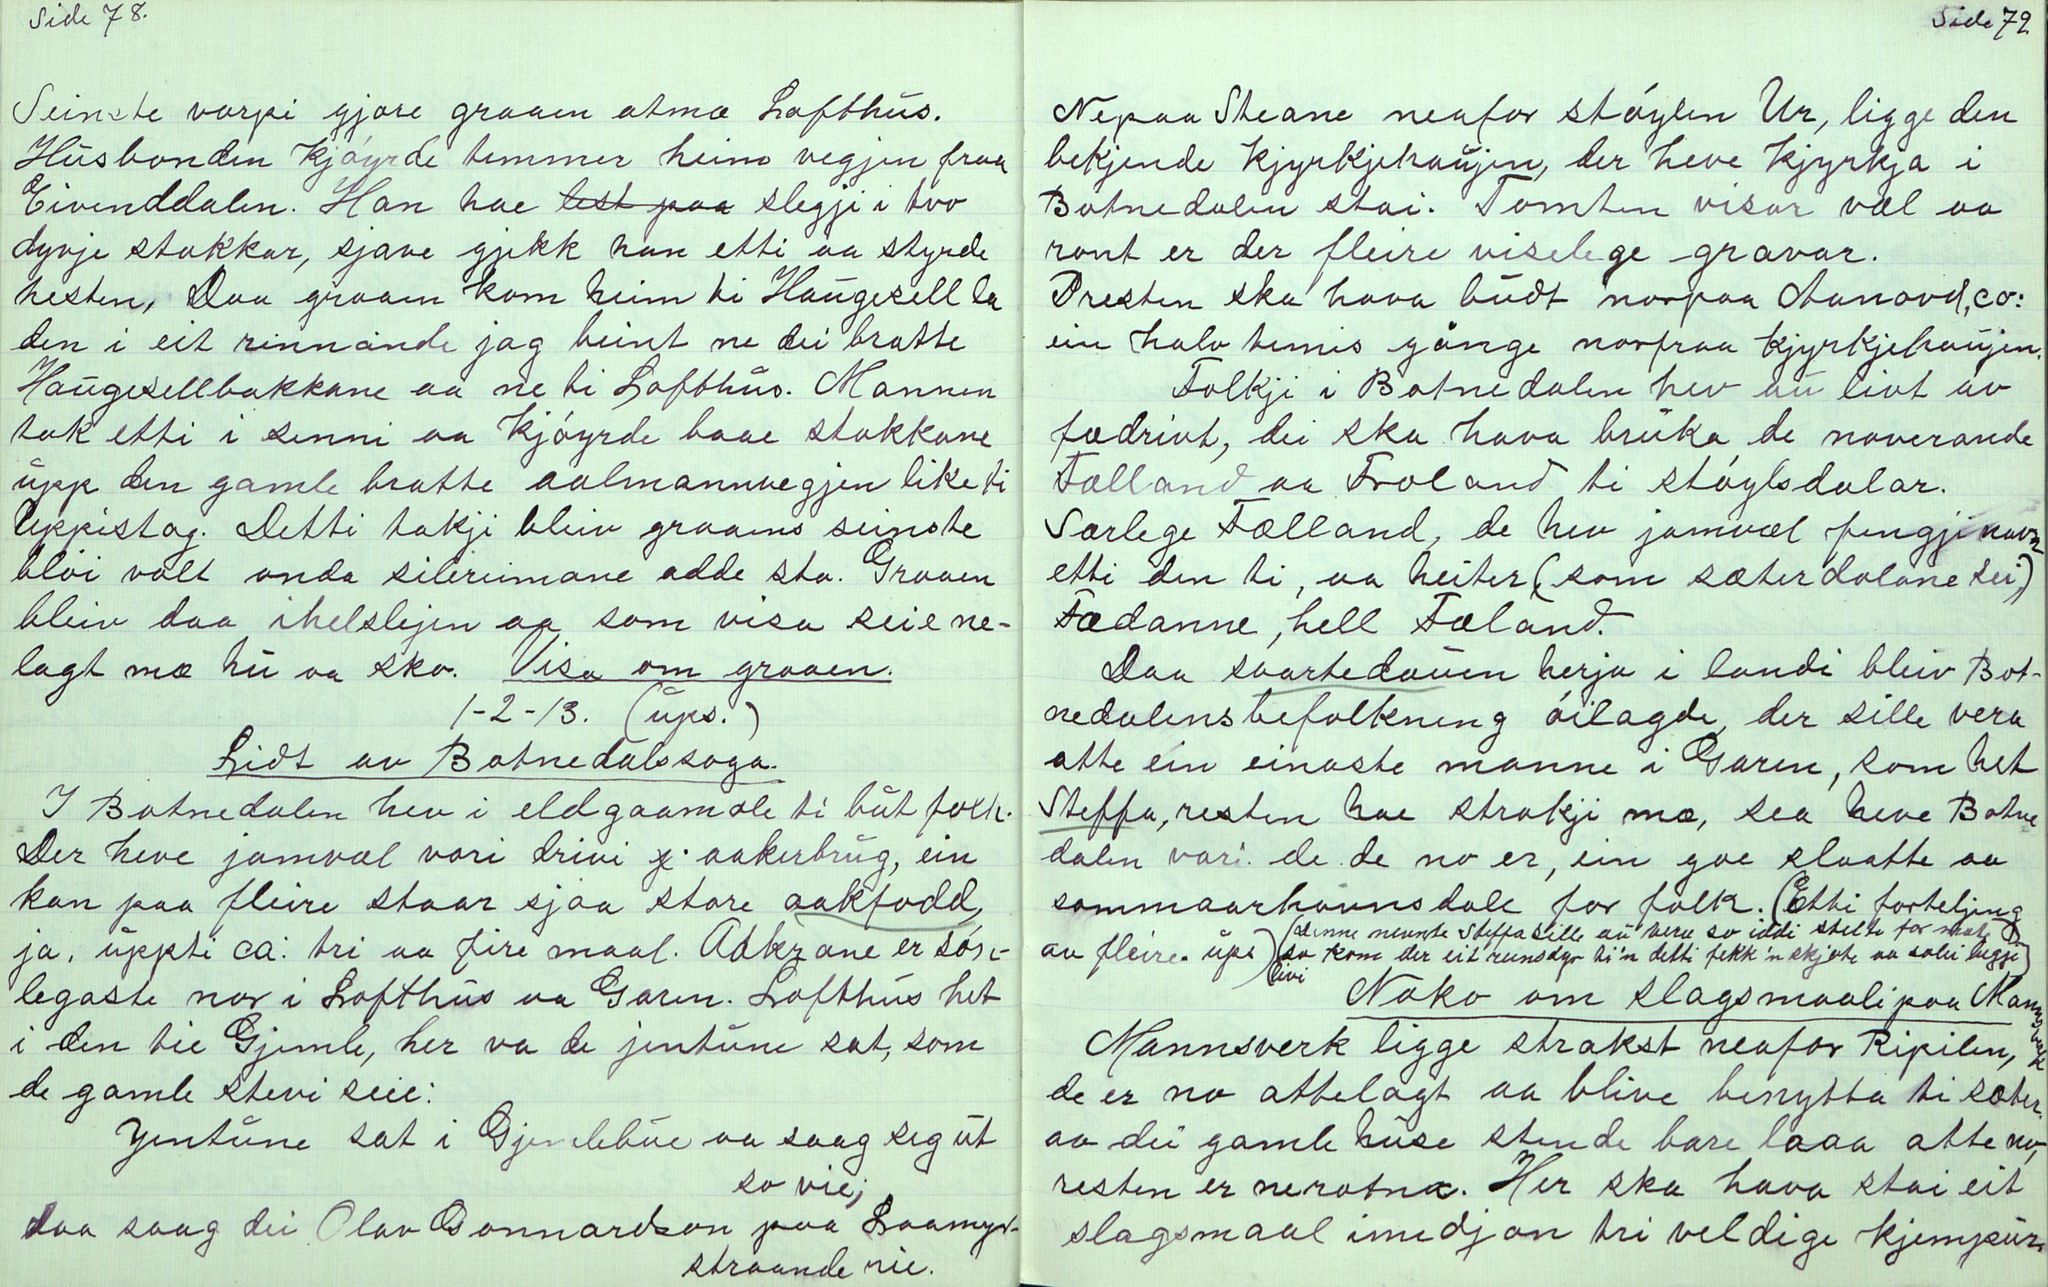 Side 78.
Seinste varpi gjore graaen atmæ Lofthus.
Husbonden kjöyrde temmer heim vegjen fraa
Eivenddalen. Han hae lest paa slegji i tvo
dyvje stokkar, sjave gjekk han etti aa styrde
hesten, Daa graaen kom heim ti Haugesell la
den i eit rinnande jag beint ne dei bratte
Haugesellbakkane aa ne ti Lofthus. Mannen
tok etti i senni aa kjöyrde baae stokkane
upp den gamle bratte aalmannvegjen like ti
Uppistog. Detti takji bleiv graaens seinste
bloi valt unda sileriimane adde sta. Graaen
bleiv daa ihelslejen aa som visa seie ne-
lagt mæ hu aa sko. Visa om graaen.
1-2-13. (ups.)
Lidt av Botnedalssoga.
I Botnedalen hev i eldgaamale ti büt folk.
Der heve jamvæl vori drivi g. aakerbrug, ein
kan paa fleire staar sjaa store aakfodd,
ja, üppti ca: tri aa fire maal. Aakrane er sör-
legaste nor i Lofthus aa Garen. Lofthus het
i den tie Gjemle, her va de jentüne sat, som
de gamle stevi seie:
Jentüne sat i Gjemlebüe aa saag seg üt
so vie;
daa saag dei Olav Gonnardson paa Laamyr-
straande rie.
Side 79
Nepaa Steane neafor stöylen Ur, ligge den
bekjende kjyrkjehaujen, der heve kjyrkja i
Botnedalen stai. Tomten visar væl aa
ront er der fleire viselege gravar.
Presten ska hava büdt norpaa Aanavd, co:
ein halv temis gånge norfraa kjyrkjehaujen.
Folkji i Botnedalen hev au livt av
fædrivt, dei ska hava brüka de noverande
Fælland aa Froland ti stöylsdalar.
Særlege Fælland, de hev jamvæl fengji navn
etti den ti, aa heiter (som sæterdolane sei)
Fædanne, hell Fæland.
Daa svartedauen herja i landi bleiv Bot-
nedalensbefolkning öilagde, der sille vera
atte ein einaste manne i Garen, som het
Steffa, resten hae strakji mæ, sea heve Botne
dalen vari de de no er, ein goe slaatte aa
sommaarhavnsdale for folk. (Etti forteljing
av fleire. ups) (dinne nevnte Steffa sille au vera so iddi stelte for mat
so kom der eit reinsdyr ti'n detti fekk 'n skjote aa solei bergji
livi
Noko om slagsmaali paa Mannsverk
Mannsverk ligge strakst neafor Ripilen,
de er no attelagt aa blive benytta ti sæter.
av dei gamle huse stende bare laaa atte no,
resten er nerotna. Her ska hava stai eit
slagsmaal imedjon tri veldige kjempur.